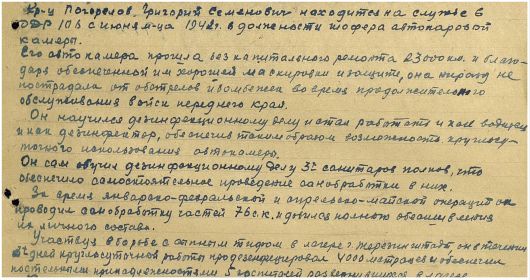 Кр-ц Погорелов, Григорий Семенович находится на службе в
ДДР 106 с июня м-ца 1942г. в должности шофера автопаровой
камеры.
Его автокамера прошла без капитального ремонта 23000 км. и благо-
даря обеспеченной им хорошей маскировки и защите, она ни разу не
пострадала от обстрелов и бомбежек во время продолжительного
обслуживания войск переднего края.
Он научился дезинфекционному делу и стал работать и как водитель
и как дезинфектор, обеспечив таким образом возможность круглосу-
точного использования автокамеры.
Он сам обучил дезинфекционному делу 3х санитаров полков, что
обеспечило самостоятельное проведение санобработки в них.
За время январско-февральской и апрельско-майской операций он
проводил санобработку частей 76 с.к. и добился полного обезвшивления
их личного состава.
Участвуя в борьбе с сыпным тифом в лагере г. он в течении
дней круглосуточной работы продезинфецировал 4000 матрацев и обеспечил
постельными принадлежностями 5 госпиталей развернувшихся в лагере